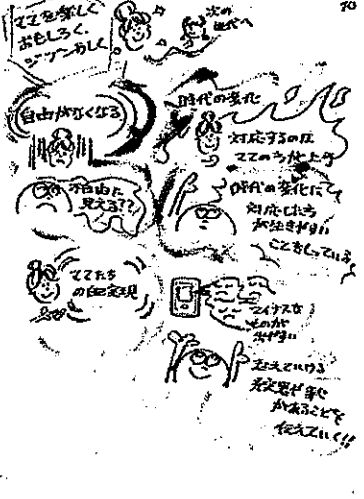 ママを楽しく
おもしろく、
ジブンらしく。
次の
世代へ
70
自由がなくなる
時代の変化
対応するのは
ママのうが上手
不自由に
見える??
時代の変化に
対応したら
が生きがい
ことをしっている
ママたち
の自己実現
マイナスな
ものが
出がない
伝えていける
があることを
伝えていく!!